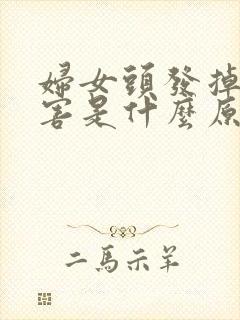 婦女頭發掉
害是什麼原
二馬示羊